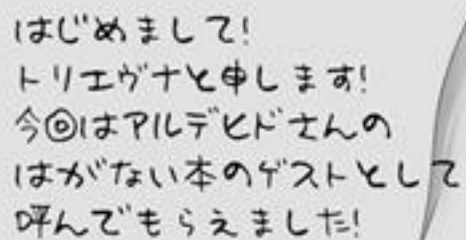 はじめまして!
トリエヴナと申します!
今回はアルデヒドさんの
はがない本のゲストとして
呼んでもらえました!